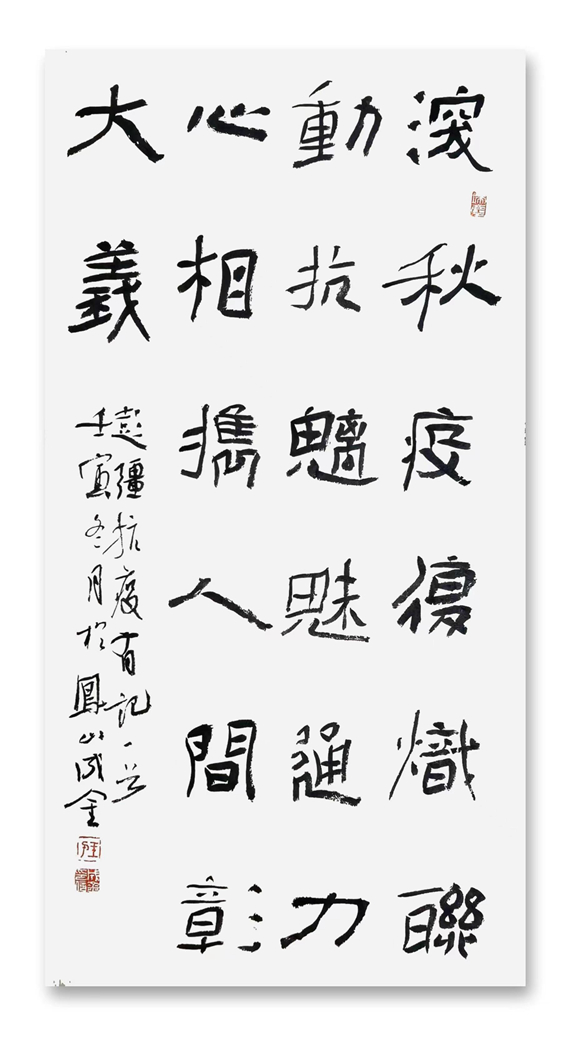 深秋疫復熾聯
動抗魑魅通力
心相攜人間彰
大義
疆抗疫有記一
壬寅冬月於鳳山成金